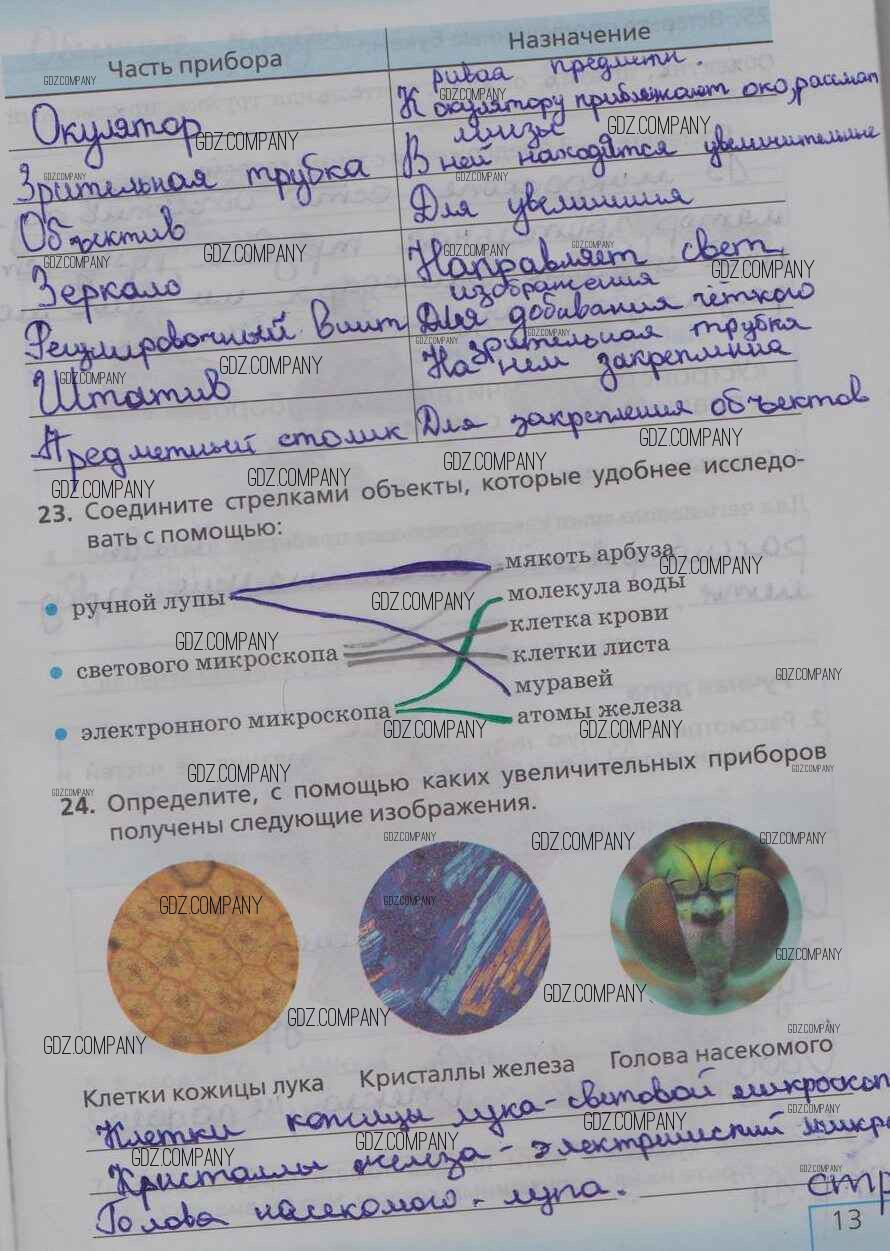 Часть прибора
Назначение
Окулятор
ривая предмети.
К окулятору приближают око, рассмат
Зрительная трубка
линзы
В ней находятся увеличительные
Объектив
Для увелишния
Зеркало
Направляет свет
Регулировочный винт
изображения
Для добивания чёткого
Штатив
зрительная трубка
На нем закреплина
Предметный столик
Для закрепления объектов
23. Соедините стрелками объекты, которые удобнее исследо-
вать с помощью:
ручной лупы
светового микроскопа
электронного микроскопа
мякоть арбуза
молекула воды
клетка крови
клетки листа
муравей
атомы железа
24. Определите, с помощью каких увеличительных приборов
получены следующие изображения.
Клетки кожицы лука
Кристаллы железа
Голова насекомого
Клетки кожицы лука - световой микроскоп
Кристаллы железа - микро
Голова насекомого - лупа.
стр
13
GDZ.COMPANY